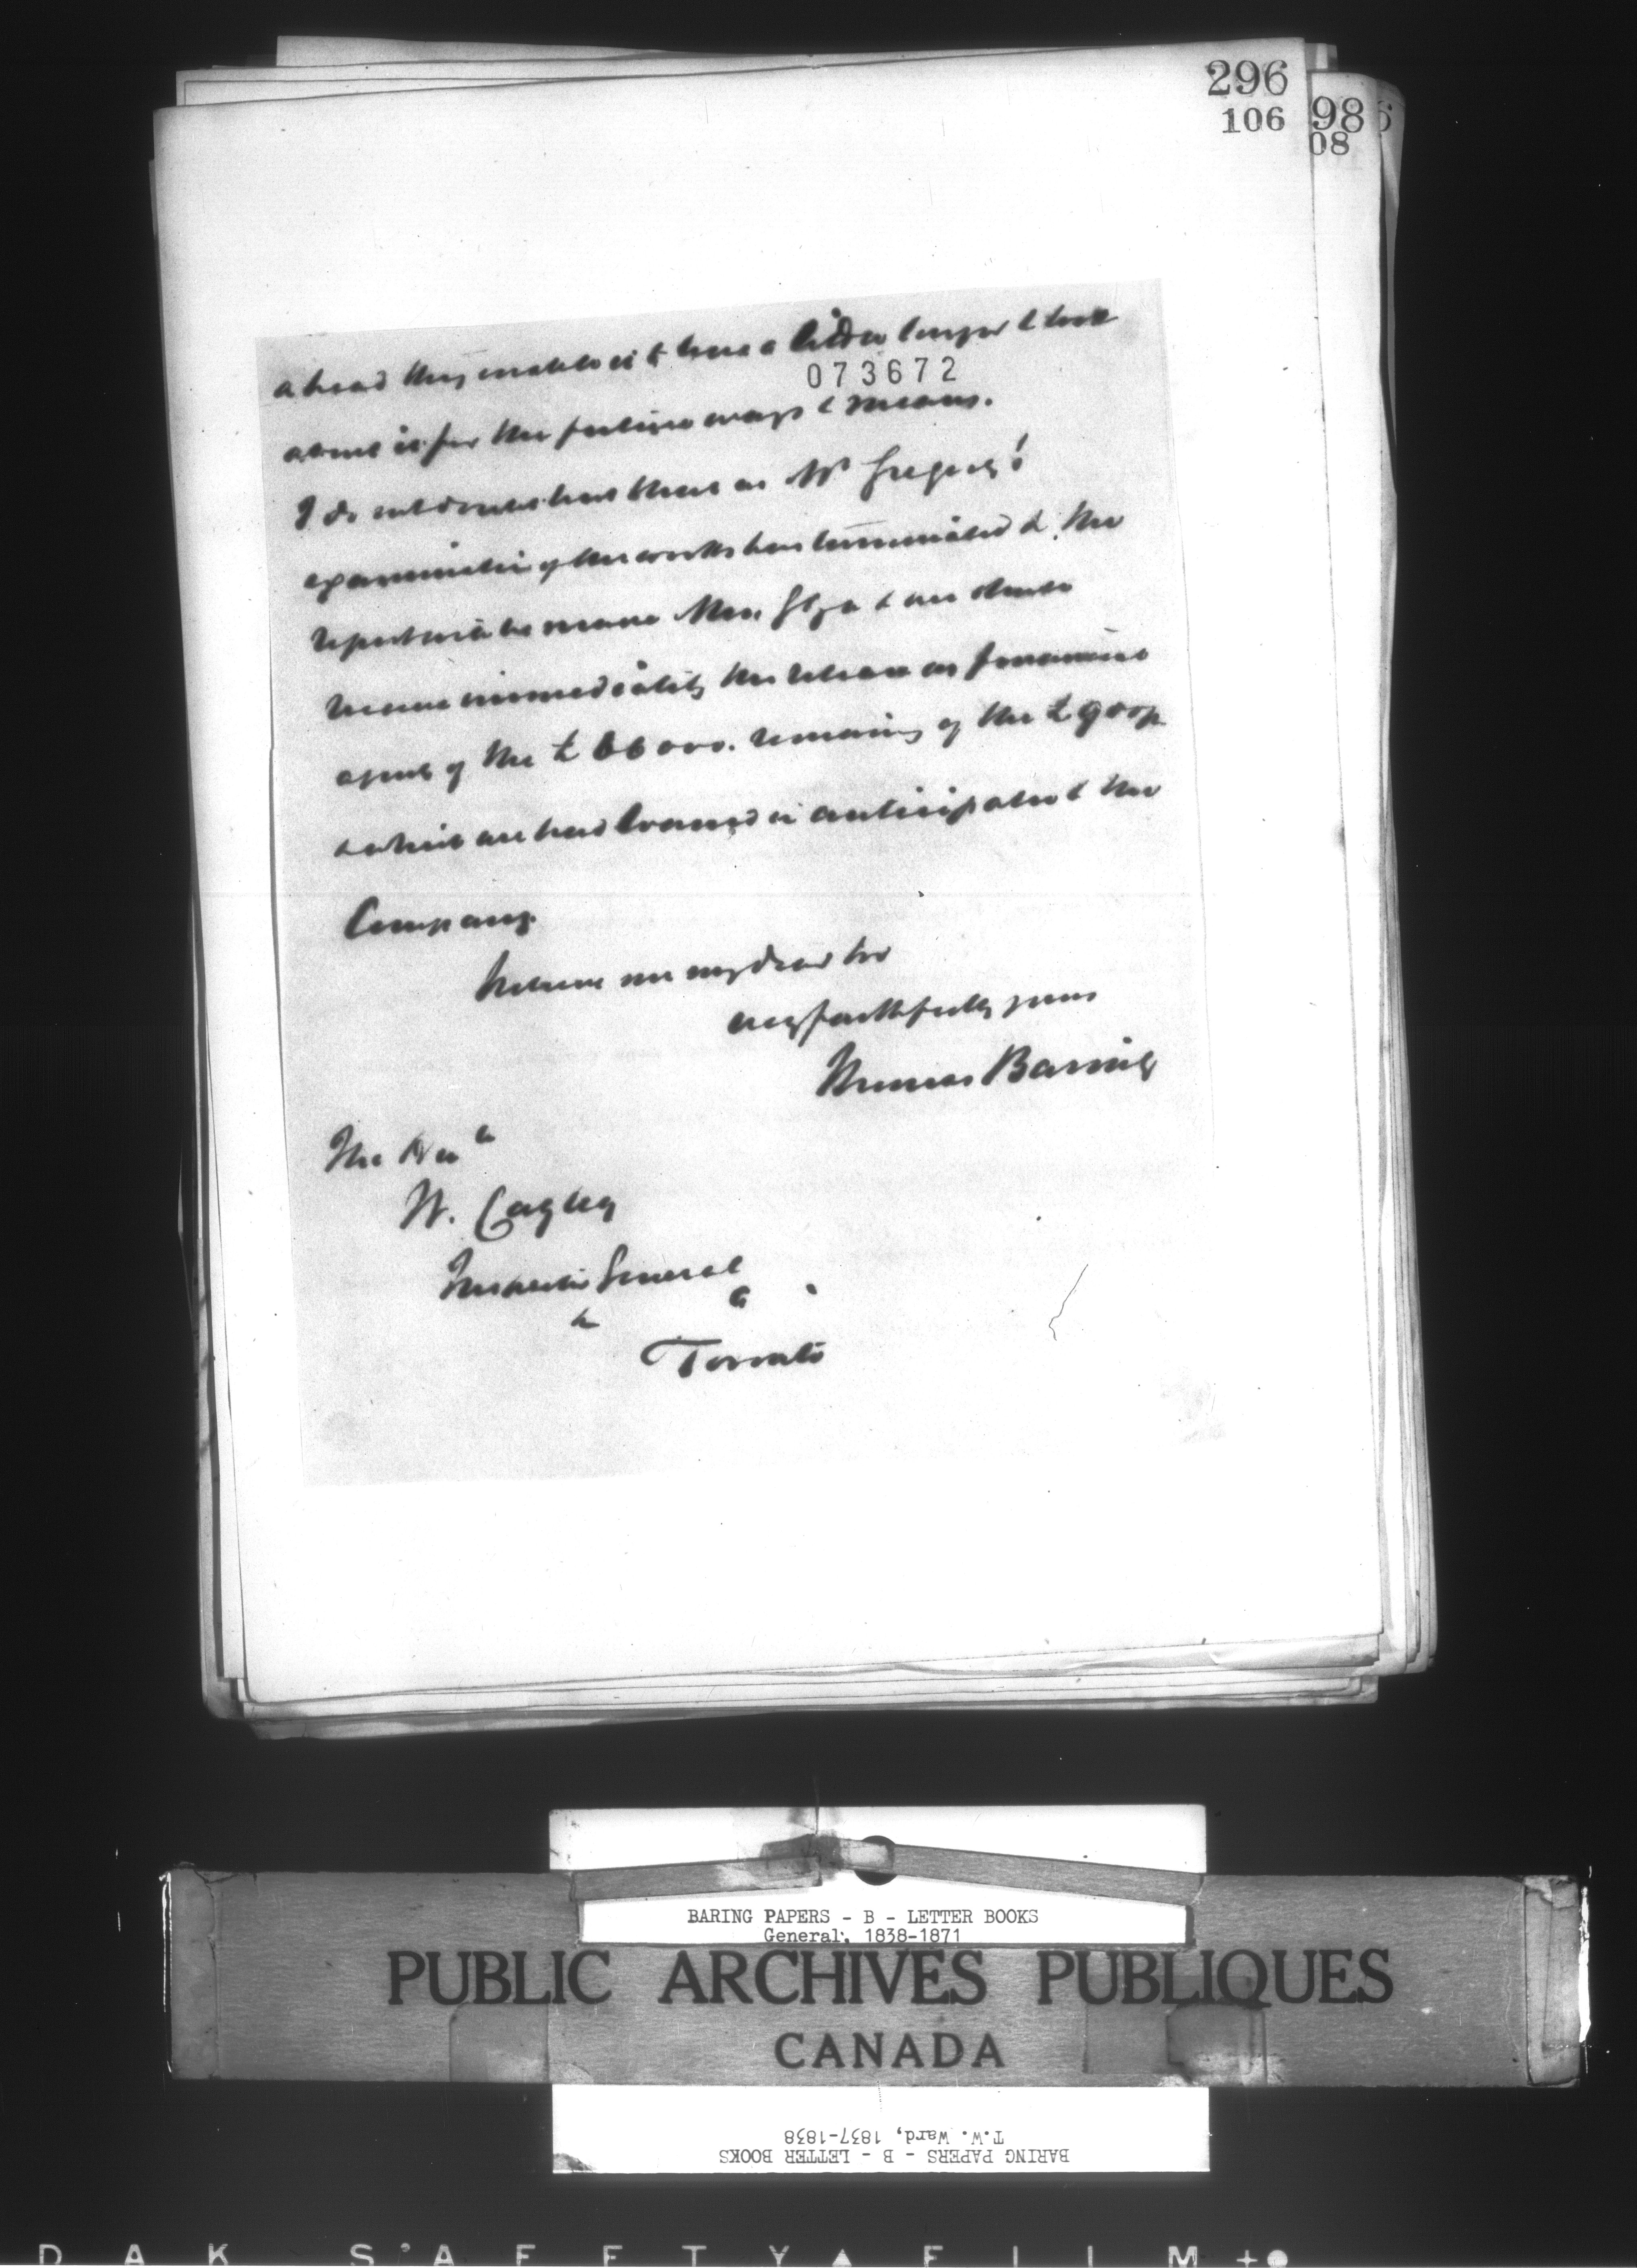 296
106
98
08
6
ahead they enable it to have a little longer to look
073672
about it for the future ways & means.
I do not doubt but that as Mr Gregory's
examination of the works has terminated & the
report will be made Mess. Glyn & we shall
receive immediately the release as financial
agents of the £66000. remaining of the £900
which we had loaned in anticipation to the
Company.
Believe me my dear Sir
very faithfully yours
Thomas Baring
The Honble
W. Cayley
Inspector General
&c &c
Toronto
BARING PAPERS - B - LETTER BOOKS
General, 1838-1871
PUBLIC ARCHIVES PUBLIQUES
CANADA
T.W. Ward, 1837-1838
BARING PAPERS - B - LETTER BOOKS
DAK S'AFETY▲FILM+●